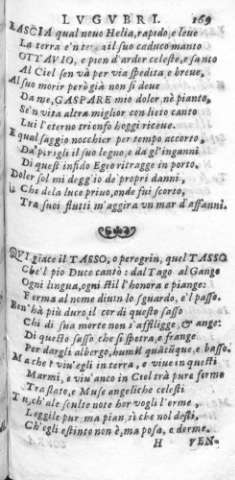 LVGVBRI. 169
LASCIA qual nouo Helia, rapido, e leue
La terra e'n il suo caduco manto
OTTAVIO, e pien d'arder celeste, e santo
Al Ciel sen và per via spedita e breue,
Al suo morir però già non si deue
Da me, GASPARE mio dolor nè pianto,
Se'n vita altra miglior con lieto canto
Lui l'eterno trionfo hoggi riceue.
E qual saggio nocchier per tempo accorto,
Da' perigli il suo legno, e da gl'inganni
Di questi infido Egeo ritragge in porto.
Doler sol mi deggio de' propri danni,
Che de la luce priuo, onde fui scorto,
Tra suoi flutti m'aggira vn mar d'affanni.
QVI giace il TASSO, o peregrin, quel TASSO
Che'l pio Duce cantò: dal Tago al Gange
Ogni lingua, ogni stil l'honora e piange:
Ferma al nome diuin lo sguardo, e'l passo.
Ben'hà più duro il cor di questo sasso
Chi di sua morte non s'affligge, & ange:
Di questo sasso che si spetra, e frange
Per dargli albergo, humil quātūque, e basso.
Ma che? viu'egli in terra, e viue in questi
Marmi, e viu'anco in Ciel trà pure forme
Traslato, e Muse angeliche celesti
Tu, ch'ale sculte note hor vogli l'orme,
Leggile pur ma pian, sì che nol desti,
Ch'egli estinto non è, ma posa, e dorme.
H VEN-